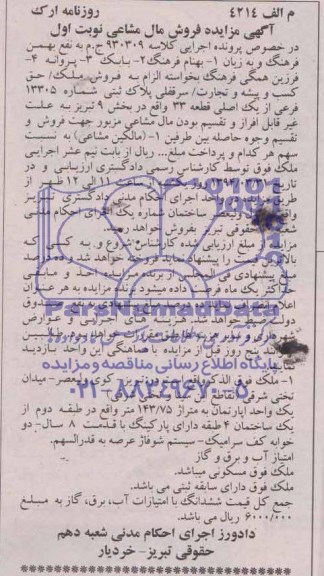 م الف ۴۲۱۴
روزنامه ارک
آگهی مزایده فروش مال مشاعی نوبت اول
در خصوص پرونده اجرایی کلاسه ۹۳۰۳۰۹ ج.م به نفع بهمن
فرهنگ و به زیان ۱- بهنام فرهنگ ۲- بابک ۳- پروانه ۴-
فرزین همگی فرهنگ بخواسته الزام به فروش ملک/ حق
کسب و پیشه و تجارت/ سرقفلی پلاک ثبتی شماره ۱۳۳۰۵
فرعی از یک اصلی قطعه ۳۳ واقع در بخش ۹ تبریز به علت
غیر قابل افراز و تقسیم بودن مال مشاعی مزبور جهت فروش و
تقسیم وجوه حاصله بین طرفین ۱- (مالکین مشاعی) به نسبت
سهم هر کدام و پرداخت مبلغ... ریال از بابت نیم عشر اجرایی
ملک فوق توسط کارشناس رسمی دادگستری ارزیابی و در
از ساعت ۱۱ الی ۱۲ ظهر از
اجرای احکام مدنی دادگستری تبریز
ساختمان شماره یک اجرای احکام مدنی
حقوقی تبریز بفروش خواهد
مزایده از مبلغ ارزیابی شده کارشناس شروع و به کسی که
بالاترین قیمت را پیشنهاد نماید فروخته خواهد شد و ده درصد
مبلغ پیشنهادی فی المجلس از برنده مزایده اخذ و مابقی
حداکثر یک ماه فرصت داده میشود برنده مزایده به هر عنوان
اعلام انصراف نماید ده درصد مبلغ پیشنهادی به نفع صندوق
دولت ضبط خواهد شد هزینه های اجرایی و عوارض
پنج روز قبل از مزایده با هماهنگی این واحد بازدید
پایگاه اطلاع رسانی مناقصه و مزایده
ParsNamadData
۰۲۱-۸۸۳۴۹۶۷۰-۵
۱- ملک فوق الذکر واقع است در تبریز- کوی ولیعصر- میدان
یک واحد آپارتمان به متراژ ۱۴۳/۷۵ متر واقع در طبقه دوم از
یک ساختمان ۴ طبقه دارای پارکینگ با قدمت ۸ سال- دو
خوابه کف سرامیک- سیستم شوفاژ عرصه به قدرالسهم.
امتیاز آب و برق و گاز
ملک فوق مسکونی میباشد.
ملک فوق دارای سابقه ثبتی می باشد.
جمع کل قیمت ششدانگ با امتیازات آب، برق، گاز به مبلغ
۶۰۰۰/۰۰۰ ریال می باشد.
دادورز اجرای احکام مدنی شعبه دهم
حقوقی تبریز- خردیار